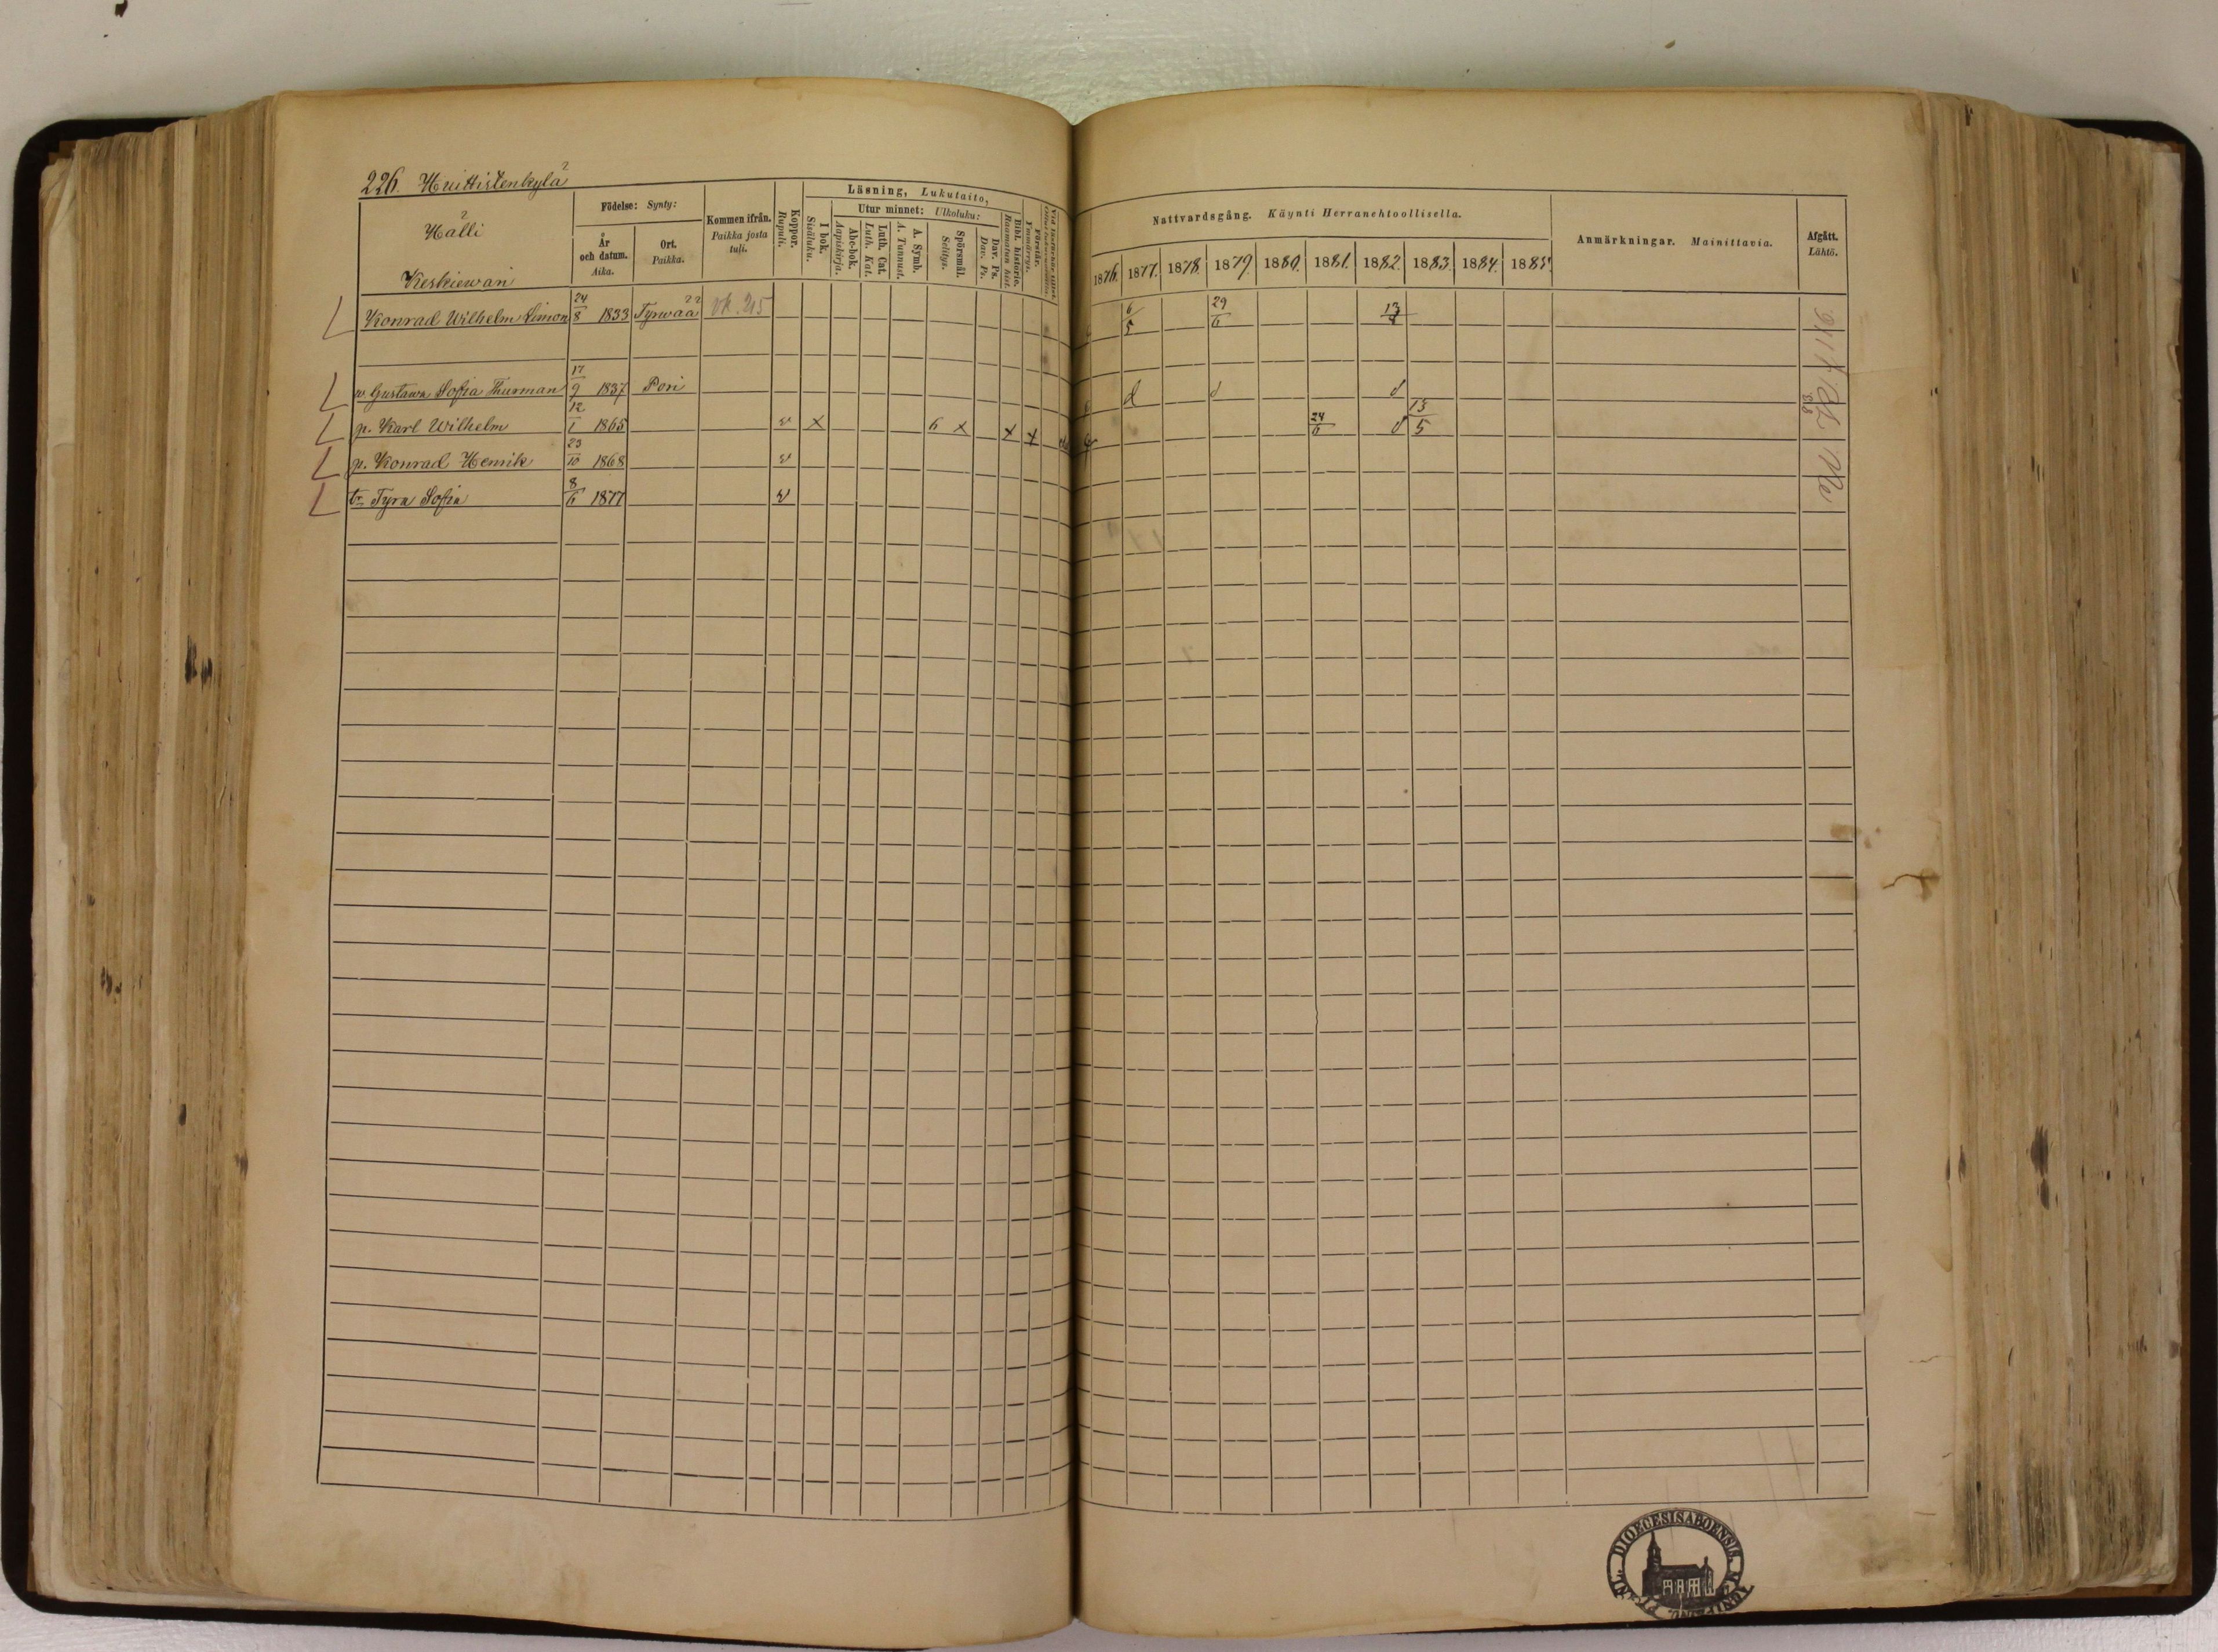 226. Huittistenkylä
Hälli
Keskiewari
Födelse: Synty:
År och datum. Aika.
Ort. Paikka.
Kommen ifrån. Paikka josta tuli.
Koppor. Rupuli.
Läsning, Lukutaito,
I bok. Sisäluku.
Utur minnet: Ulkoluku:
Abc-bok. Aapiskirja.
Luth. Cat. Luth. Kat.
A. Symb. A. Tunnust.
Spörsmål. Selitys.
Dav. Ps. Dav. Ps.
Bibl. historie. Raamatun hist.
Förstår. Ymmärrys.
Nattvardsgång. Käynti Herranehtoollisella.
1876. 1877. 1878. 1879. 1880. 1881. 1882. 1883. 1884. 1885.
Anmärkningar. Mainittavia.
Afgått. Lähtö.
Konrad Wilhelm Simon 24/8 1833 Tyrwää 6/5 29/6
w. Gustawa Sofia Thurman 17/9 1837 Pori d d d
p. Karl Wilhelm 12/1 1865 w x 6 x x x 24/6 d 13/5
p. Konrad Henrik 23/10 1868 w
tr Tyra Sofia 8/6 1877 w
DIOECESIS ABOENSIS